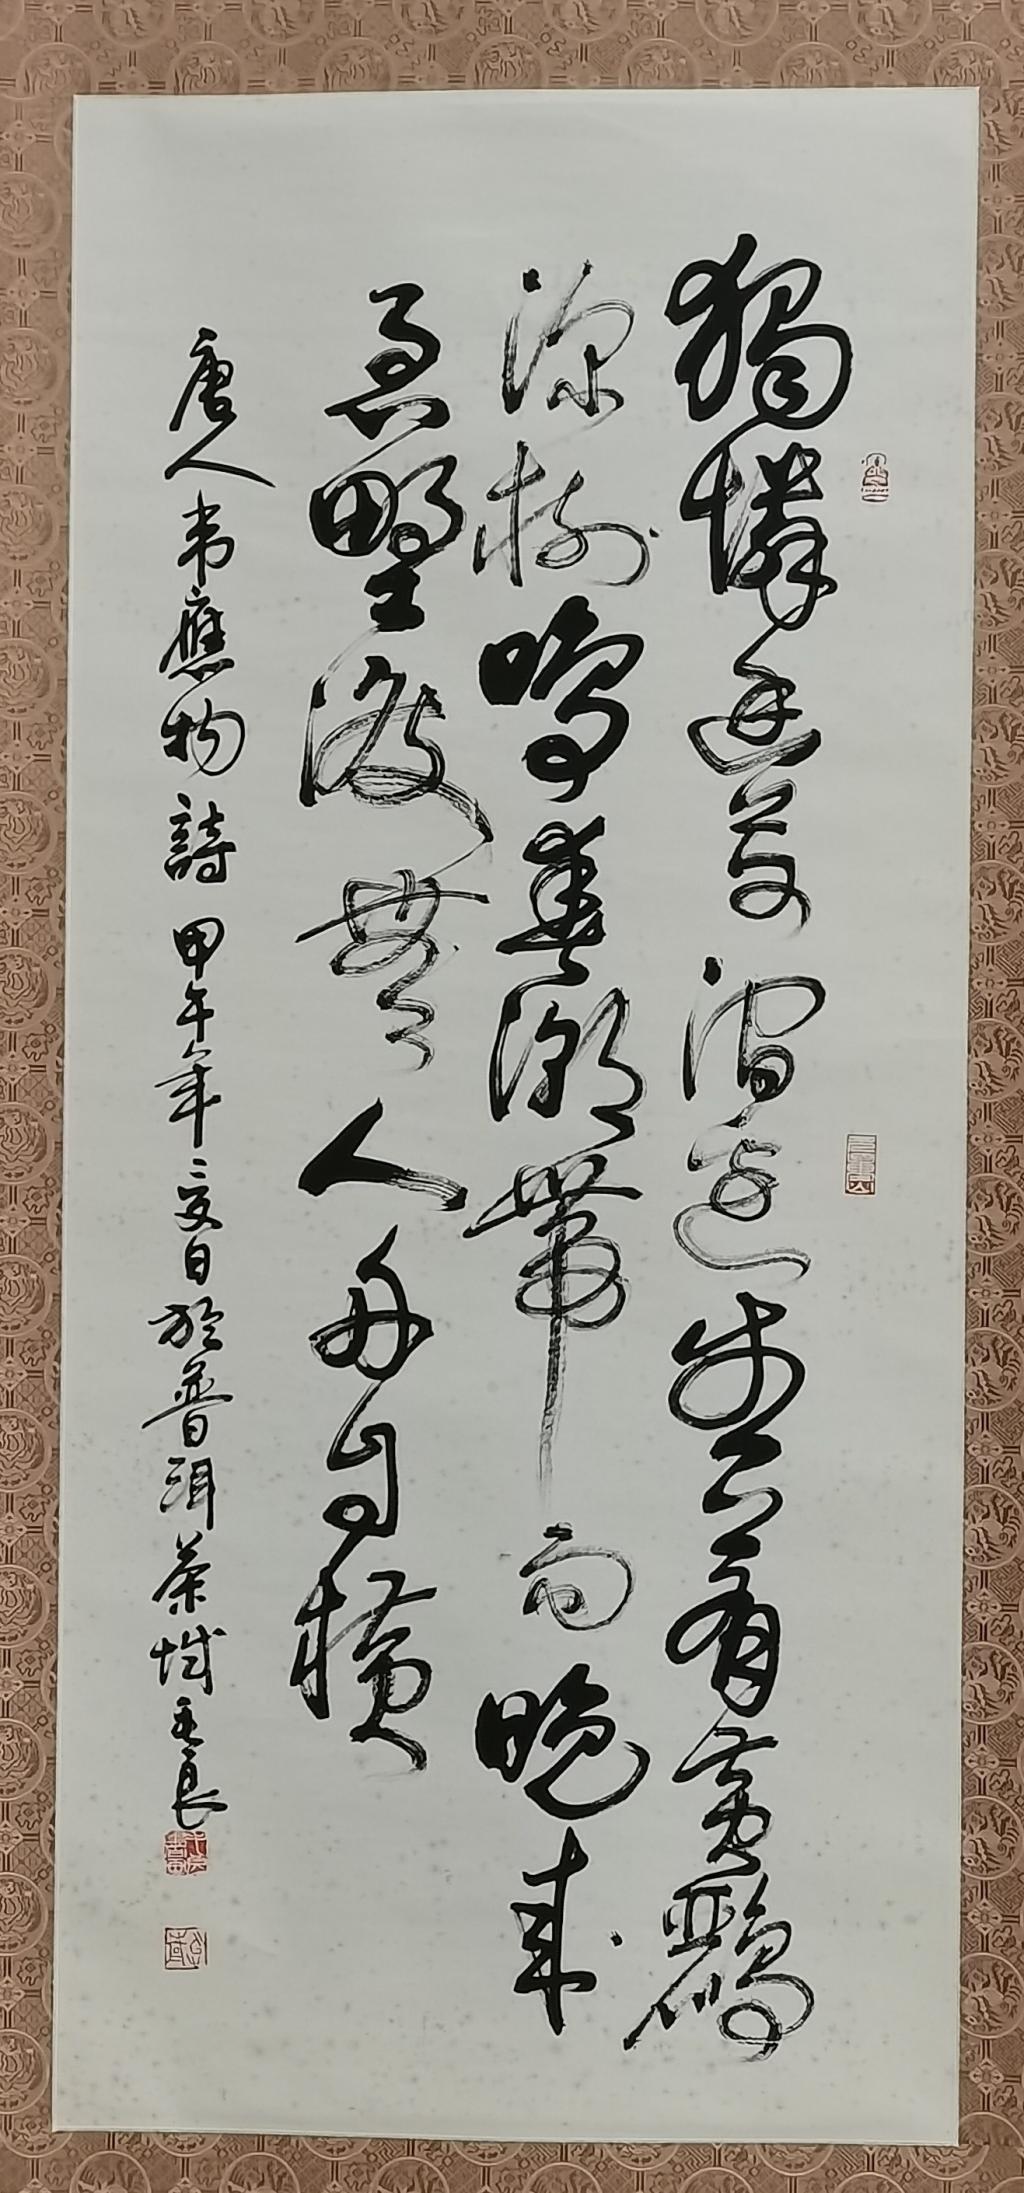 獨憐幽草澗邊生上有黃鸝
深樹鳴春潮帶雨晚來
急野渡無人舟自橫
唐人韋應物詩甲午年之夏日於普洱茶城良